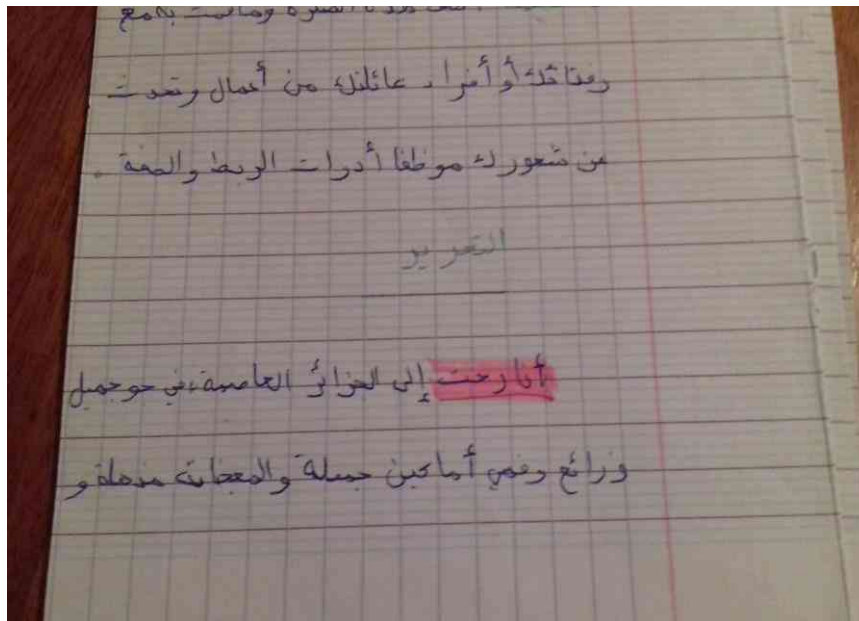 الفترة وما قمت به مع
رفقائك أو أفراد عائلتك من أعمال وتحدث
عن شعورك موظفا أدوات الربط والصفة .
التحرير
أنا رحت إلى الجزائر العاصمة، في جو جميل
ورائع وفي أماكين جميلة والمعجابة مذهلة و